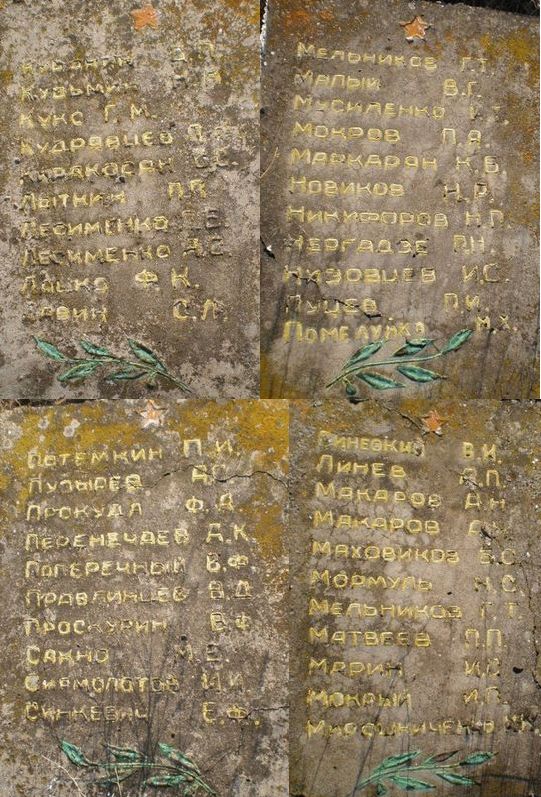 Кузьмин
Куко Г. М.
Кудрявцев
Каракосян С.С.
Лыткин П.П.
Лесименко В.Е.
Лесименко А.С.
Лашко Ф. К.
Савин С.Л.
Мельников Г.Т.
Малый В.Г.
Мусиленко
Мокров П.А.
Маркарян К.Б.
Новиков Н.Р.
Никифоров Н.П.
Чергадзе Г.Н.
Низовцев И.С.
Луцев П.И.
Помелуйко М.Х.
Потемкин П.И.
Пузырев А.С.
Прокуда Ф.Д
Перенечаев А.К.
Поперечный В.Ф.
Правдинцев В.Д
Проскурин В.Ф
Сахно М.Е.
Сыромолотов И.И.
Синкевич Е.Ф.
Линевкий В.И.
Линев Д.П.
Макаров А.Н
Макаров
Маховиков В.С
Мормуль Н.С
Мельников Г.Т.
Матвеев П.П.
Марин И.С
Мокрый И.Г.
Мирошниченко